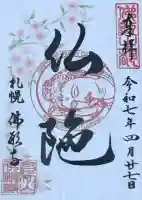 奉拝
令和七年四月廿七日
仏陀
札幌 佛願寺